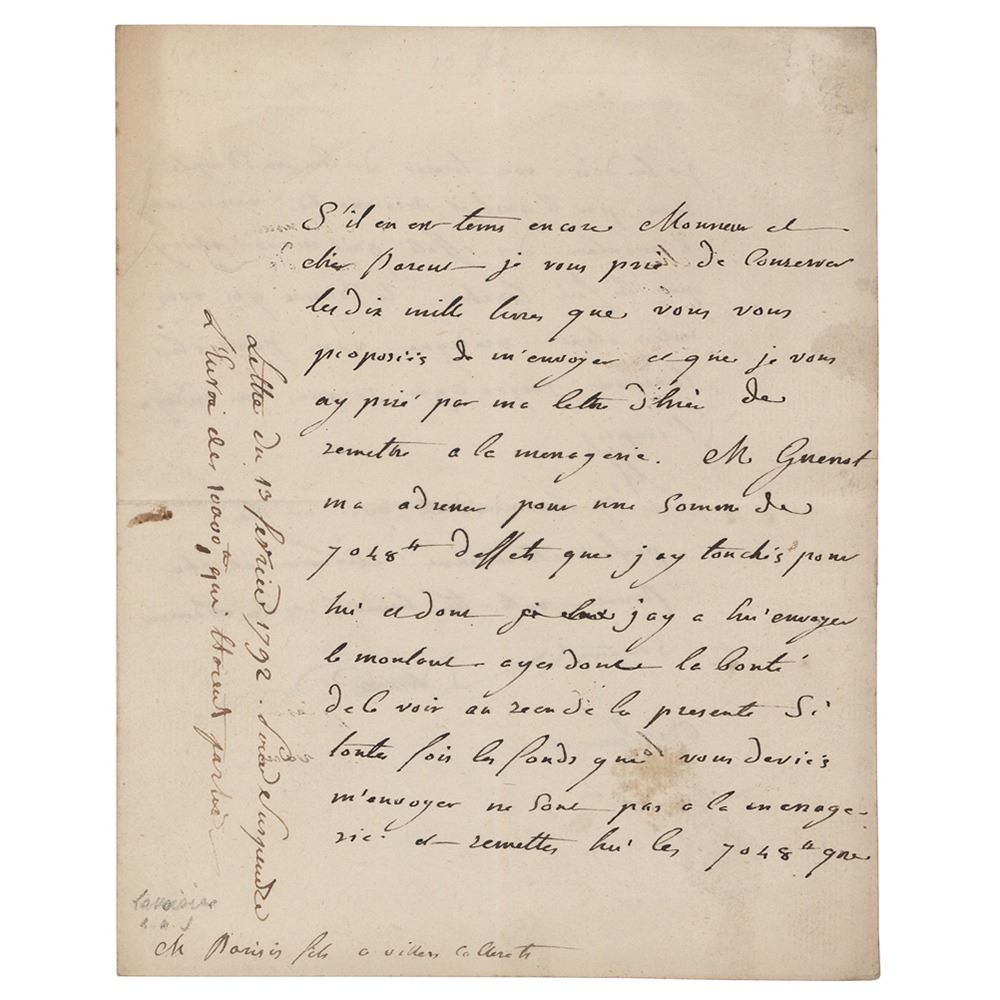 S'il en est tems encore Monsieur et
cher Parent je vous prie de Conserver
les dix mille livres que vous vous
proposiés de m'envoyer et que je vous
ay prié par ma lettre d'hier de
remettre a la menagerie. M Guenot
ma adressé pour une Somme de
7048 ₶ deffets que j ay touchés pour
lui et dont je j ay a lui envoyer
le montant ayes donc la bonté
de le voir au recu de la presente Si
toutes fois les fonds que vous deviés
m'envoyer ne Sont pas a la menage-
rie et remettes lui les 7048 ₶ que
M Parisis fils a villers Cotterets
Lettre du 13 fevrier 1792. Suspendre
L'Envoi des 10000 ₶ qui étoient partis
Lavoisier
L. a. s